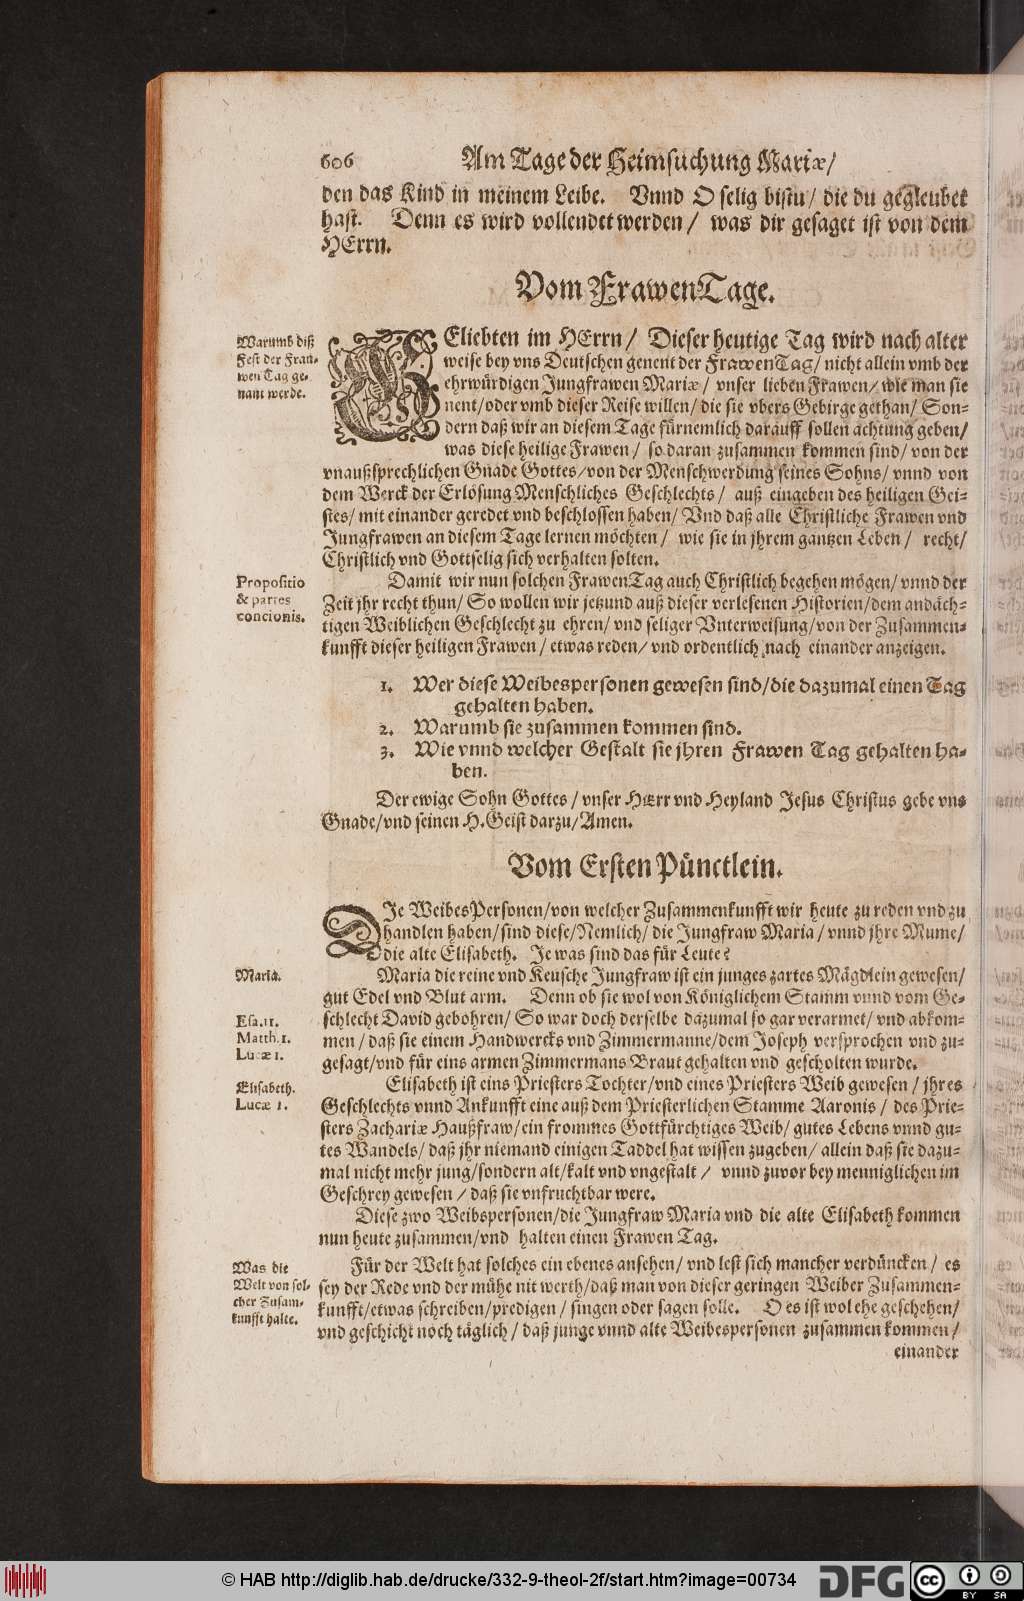 606 Am Tage der Heimsuchung Mariæ/
den das Kind in meinem Leibe. Vnnd O selig bistu/ die du gegleubet
hast. Denn es wird vollendet werden/ was dir gesaget ist von dem
HErrn.
Vom FrawenTage.
Warumb diß
Fest der Frau-
wen Tag ge-
nant werde.
GEliebten im HErrn/ Dieser heutige Tag wird nach alter
weise bey vns Deutschen genent der FrawenTag/ nicht allein vmb der
ehrwürdigen Jungfrawen Mariæ/ vnser lieben Frawen/ wie man sie
nent/oder vmb dieser Reise willen/ die sie vbers Gebirge gethan/ Son-
dern daß wir an diesem Tage fürnemlich darauff sollen achtung geben/
was diese heilige Frawen/ so daran zusammen kommen sind/ von der
vnaußsprechlichen Gnade Gottes/von der Menschwerdung seines Sohns/ vnnd von
dem Werck der Erlösung Menschliches Geschlechts/ auß eingeben des heiligen Gei-
stes/ mit einander geredet vnd beschlossen haben/ Vnd daß alle Christliche Frawen vnd
Jungfrawen an diesem Tage lernen möchten/ wie sie in jhrem gantzen Leben/ recht/
Christlich vnd Gottselig sich verhalten solten.
Propositio
& partes
concionis.
Damit wir nun solchen FrawenTag auch Christlich begehen mögen/ vnnd der
Zeit jhr recht thun/ So wollen wir jetzund auß dieser verlesenen Historien/dem andäch-
tigen Weiblichen Geschlecht zu ehren/ vnd seliger Vnterweisung/von der Zusammen-
kunfft dieser heiligen Frawen/ etwas reden/ vnd ordentlich nach einander anzeigen.
1. Wer diese Weibespersonen gewesen sind/die dazumal einen Tag
gehalten haben.
2. Warumb sie zusammen kommen sind.
3. Wie vnnd welcher Gestalt sie jhren Frawen Tag gehalten ha-
ben.
Der ewige Sohn Gottes/ vnser HErr vnd Heyland Jesus Christus gebe vns
Gnade/vnd seinen H.Geist darzu/Amen.
Vom Ersten Pünctlein.
DIe WeibesPersonen/von welcher Zusammenkunfft wir heute zu reden vnd zu
handlen haben/sind diese/Nemlich/ die Jungfraw Maria/ vnnd jhre Mume/
die alte Elisabeth. Je was sind das für Leute?
Maria.
Maria die reine vnd Keusche Jungfraw ist ein junges zartes Mägdlein gewesen/
gut Edel vnd Blut arm. Denn ob sie wol von Königlichem Stamm vnnd vom Ge-
Esa.11.
Matth.1.
Lucæ 1.
schlecht David gebohren/ So war doch derselbe dazumal so gar verarmet/ vnd abkom-
men/ daß sie einem Handwercks vnd Zimmermanne/dem Joseph versprochen vnd zu-
gesagt/vnd für eins armen Zimmermans Braut gehalten vnd gescholten wurde.
Elisabeth.
Lucæ 1.
Elisabeth ist eins Priesters Tochter/vnd eines Priesters Weib gewesen/ jhres
Geschlechts vnnd Ankunfft eine auß dem Priesterlichen Stamme Aaronis/ des Prie-
sters Zachariæ Haußfraw/ein frommes Gottfürchtiges Weib/ gutes Lebens vnnd gu-
tes Wandels/ daß jhr niemand einigen Taddel hat wissen zugeben/ allein daß sie dazu-
mal nicht mehr jung/sondern alt/kalt vnd vngestalt/ vnnd zuvor bey menniglichen im
Geschrey gewesen/ daß sie vnfruchtbar were.
Diese zwo Weibspersonen/die Jungfraw Maria vnd die alte Elisabeth kommen
nun heute zusammen/vnd halten einen Frawen Tag.
Was die
Welt von sol-
cher Zusam-
kunfft halte.
Für der Welt hat solches ein ebenes ansehen/ vnd lest sich mancher verdüncken/ es
sey der Rede vnd der mühe nit werth/daß man von dieser geringen Weiber Zusammen-
kunfft/etwas schreiben/predigen/ singen oder sagen solle. O es ist wol ehe geschehen/
vnd geschicht noch täglich/ daß junge vnnd alte Weibespersonen zusammen kommen/
einander
© HAB http://diglib.hab.de/drucke/332-9-theol-2f/start.htm?image=00734
DFG
cc
BY SA